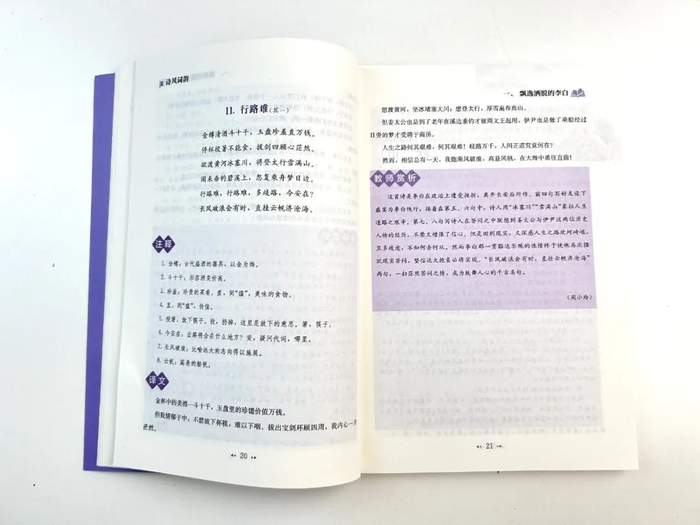 诗风词韵
11. 行路难(其一)
金樽清酒斗十千，玉盘珍羞直万钱。
停杯投箸不能食，拔剑四顾心茫然。
欲渡黄河冰塞川，将登太行雪满山。
闲来垂钓碧溪上，忽复乘舟梦日边。
行路难，行路难，多歧路，今安在？
长风破浪会有时，直挂云帆济沧海。
注释
1. 金樽：古代盛酒的器具，以金为饰。
2. 斗十千：形容酒美价高。
3. 珍羞：珍贵的菜肴。羞，同“馐”，美味的食物。
4. 直：同“值”，价值。
5. 投箸：放下筷子。投，扔掉，这里是放下的意思。箸，筷子。
6. 今安在：此路将会在什么地方？安，疑问代词，哪里。
7. 长风破浪：比喻远大的志向得以施展。
8. 云帆：高高的船帆。
译文
金杯中的美酒一斗十千，玉盘里的珍馐价值万钱。
但我情郁于中，不禁放下杯筷，难以下咽。拔出宝剑环顾四周，我内心一片
茫然。
20
一、飘逸洒脱的李白
想渡黄河，坚冰堵塞大川；想登太行，厚雪遍布高山。
但姜太公也是到了老年在溪边垂钓才被周文王起用，伊尹也是做了乘船经过
日旁的梦才受聘于商汤。
人生之路何其艰难，何其艰难！歧路万千，人间正道究竟何在？
然而，相信总有一天，我能乘风破浪，高悬风帆，在大海中勇往直前！
教师赏析
这首诗是李白在政治上遭受挫折，离开长安后所作。前四句写好友设下
盛宴为李白饯行，接着在第五、六句中，诗人用“冰塞川”“雪满山”象征人生
道路之艰辛。第七、八句写诗人在苦闷之中联想到姜太公与伊尹这两位历史
人物的经历，不禁又增强了信心。但是回到现实，又深感人生之路敧岖崎岖，
且多歧途，不知何去何从。然而李白那一贯豁达乐观的性情终于使他再次摆
脱现实苦闷，坚信远大抱负必将实现。“长风破浪会有时，直挂云帆济沧海”
两句，一扫茫然苦闷之情，成为鼓舞人心的千古名句。
（周小玲）
21